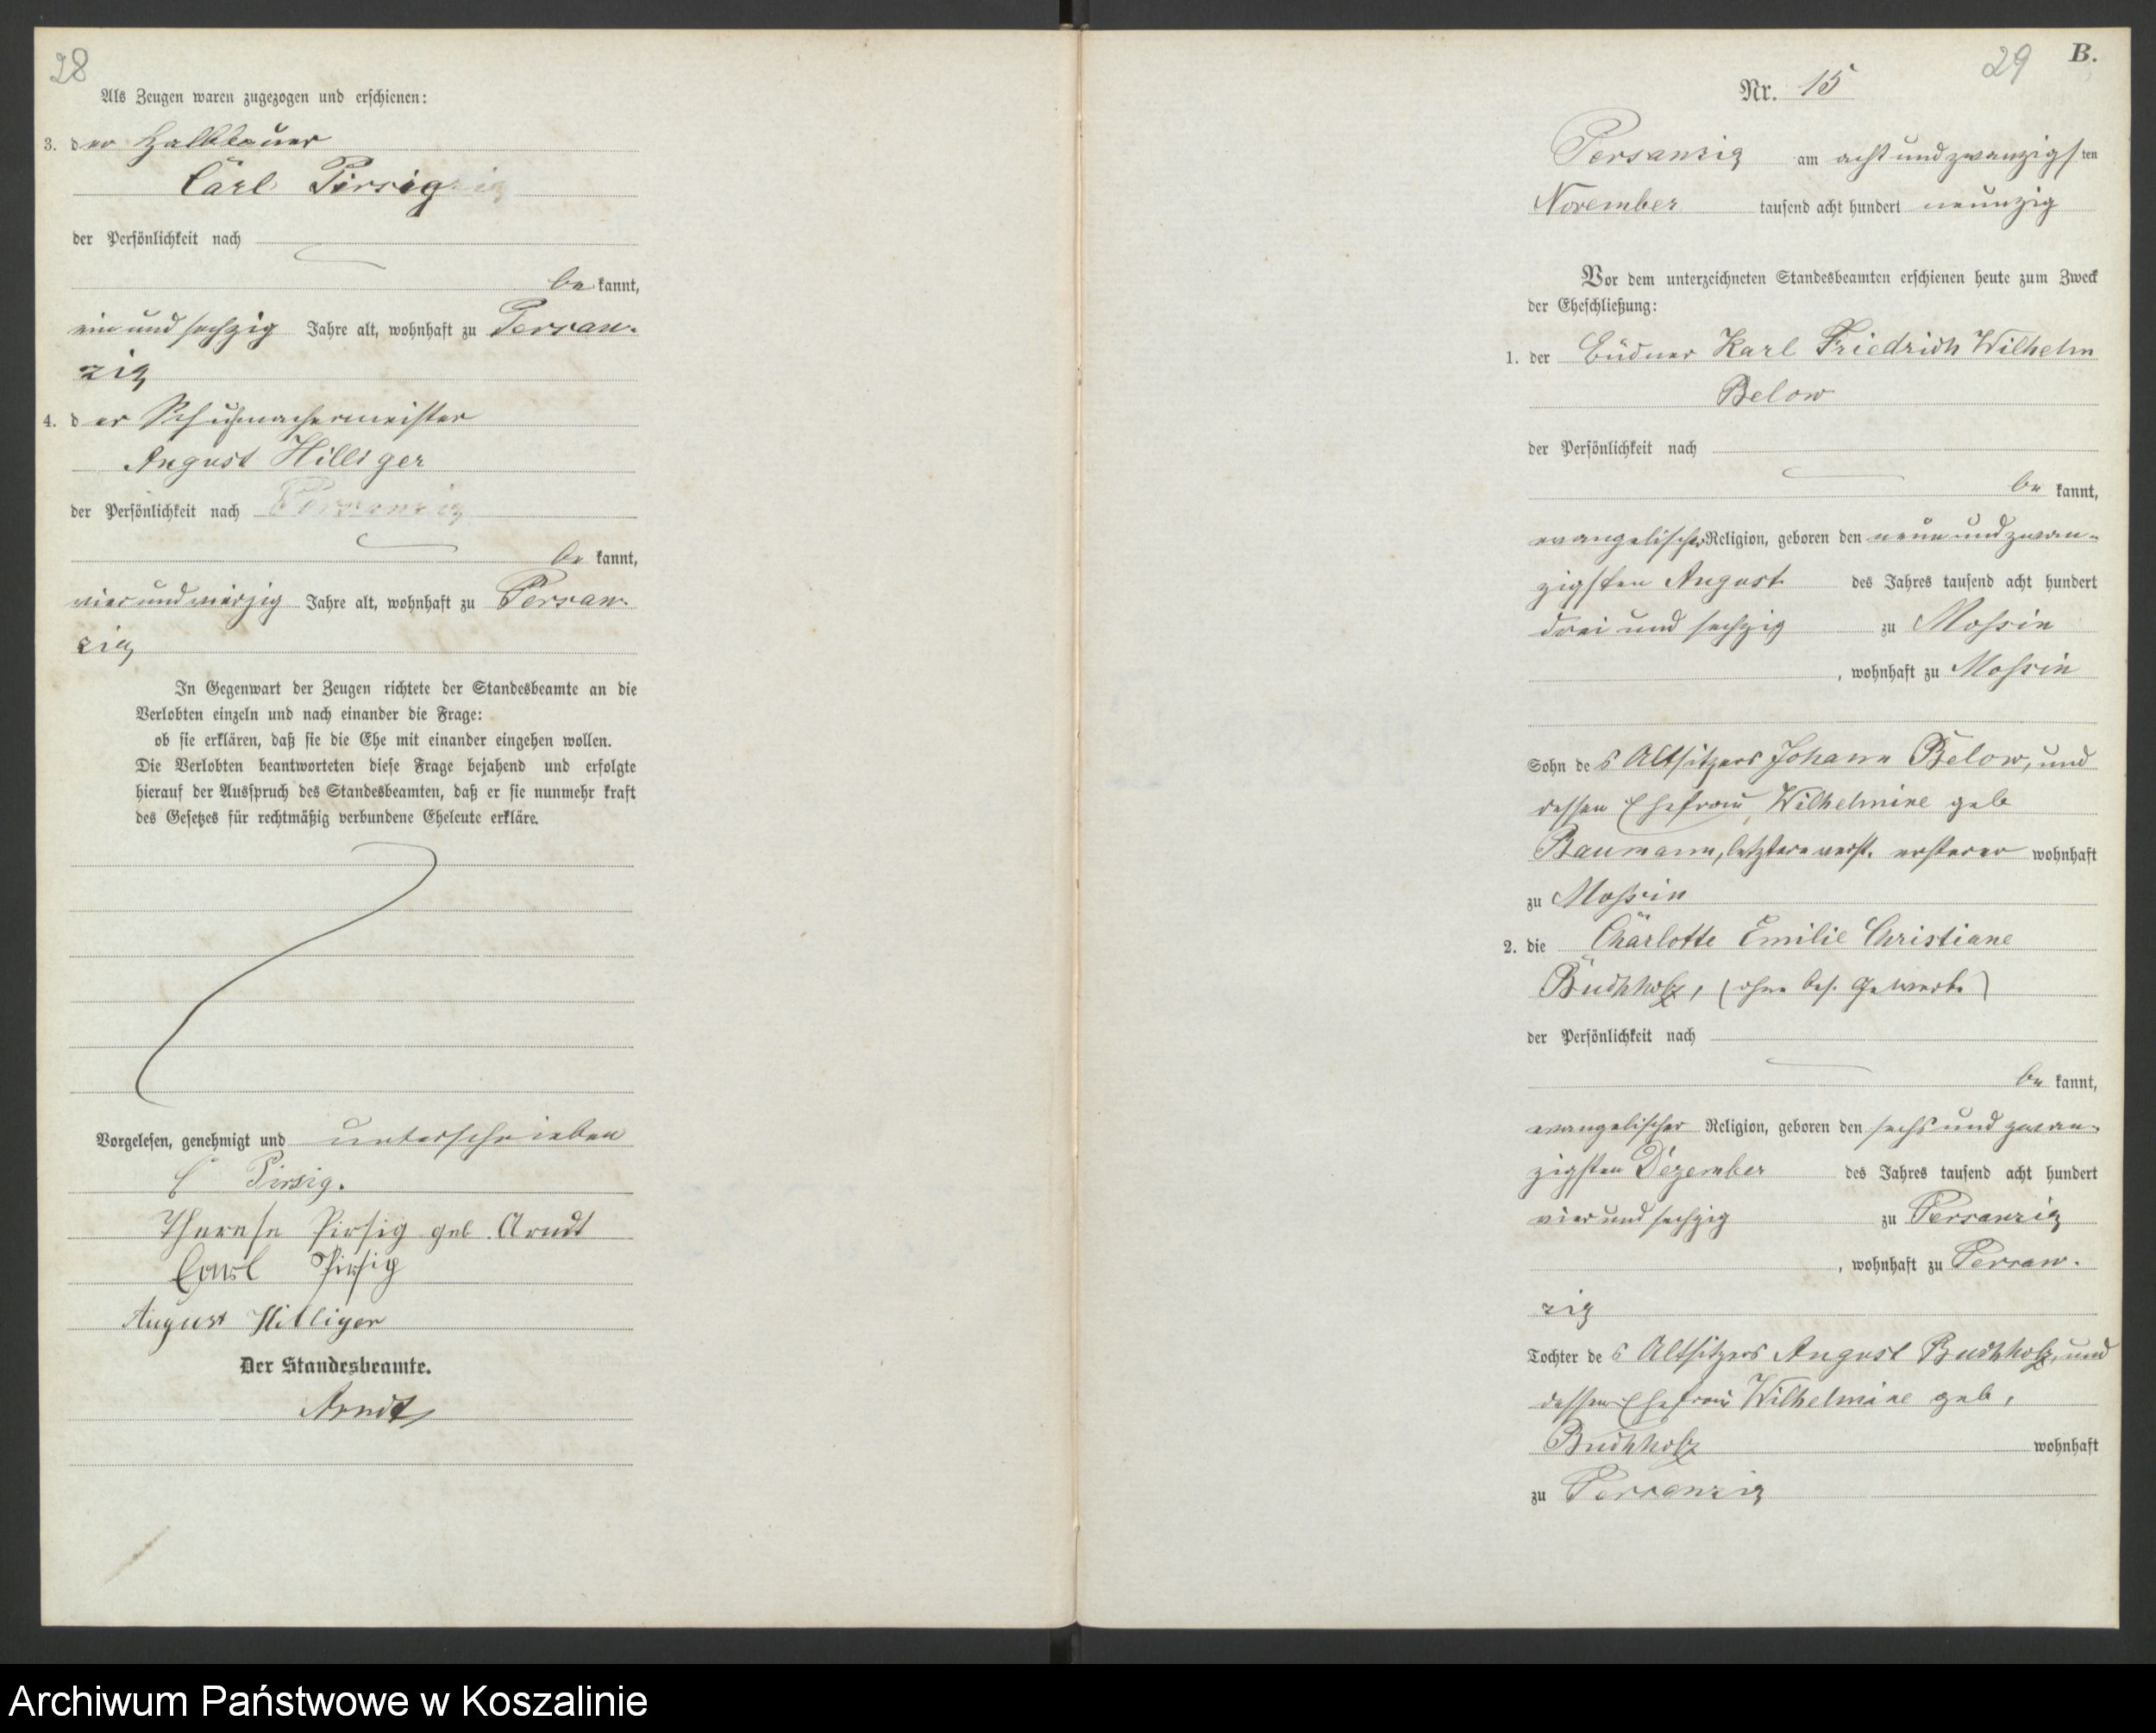 28
Als Zeugen waren zugezogen und erschienen:
3. der Halbbauer
Carl Pirsig
der Persönlichkeit nach
bekannt,
ein und sechzig Jahre alt, wohnhaft zu Persan-
zig
4. der Schuhmachermeister
August Hilliger
der Persönlichkeit nach Persanzig
bekannt,
vier und vierzig Jahre alt, wohnhaft zu Persan-
zig
In Gegenwart der Zeugen richtete der Standesbeamte an die
Verlobten einzeln und nach einander die Frage:
ob sie erklären, daß sie die Ehe mit einander eingehen wollen.
Die Verlobten beantworteten diese Frage bejahend und erfolgte
hierauf der Ausspruch des Standesbeamten, daß er sie nunmehr kraft
des Gesetzes für rechtmäßig verbundene Eheleute erkläre.
Vorgelesen, genehmigt und unterschrieben
C Pirsig.
Therese Pirsig geb. Arndt
Carl Pirsig
August Hilliger
Der Standesbeamte.
Arndt
29 B.
Nr. 15
Persanzig am acht und zwanzigsten
November tausend acht hundert neunzig
Vor dem unterzeichneten Standesbeamten erschienen heute zum Zweck
der Eheschließung:
1. der Büdner Karl Friedrich Wilhelm
Below
der Persönlichkeit nach
bekannt,
evangelischer Religion, geboren den neun und zwan-
zigsten August des Jahres tausend acht hundert
drei und sechzig zu Mossin
, wohnhaft zu Mossin
Sohn des Altsitzers Johann Below, und
dessen Ehefrau, Wilhelmine geb
Baumann, letztere verst. ersterer wohnhaft
zu Mossin
2. die Charlotte Emilie Christiane
Buchholz, (ohne bes. Gewerbe)
der Persönlichkeit nach
bekannt,
evangelischer Religion, geboren den sechs und zwan-
zigsten Dezember des Jahres tausend acht hundert
vier und sechzig zu Persanzig
, wohnhaft zu Persan-
zig
Tochter des Altsitzers August Buchholz, und
dessen Ehefrau Wilhelmine geb.
Buchholz wohnhaft
zu Persanzig
Archiwum Państwowe w Koszalinie